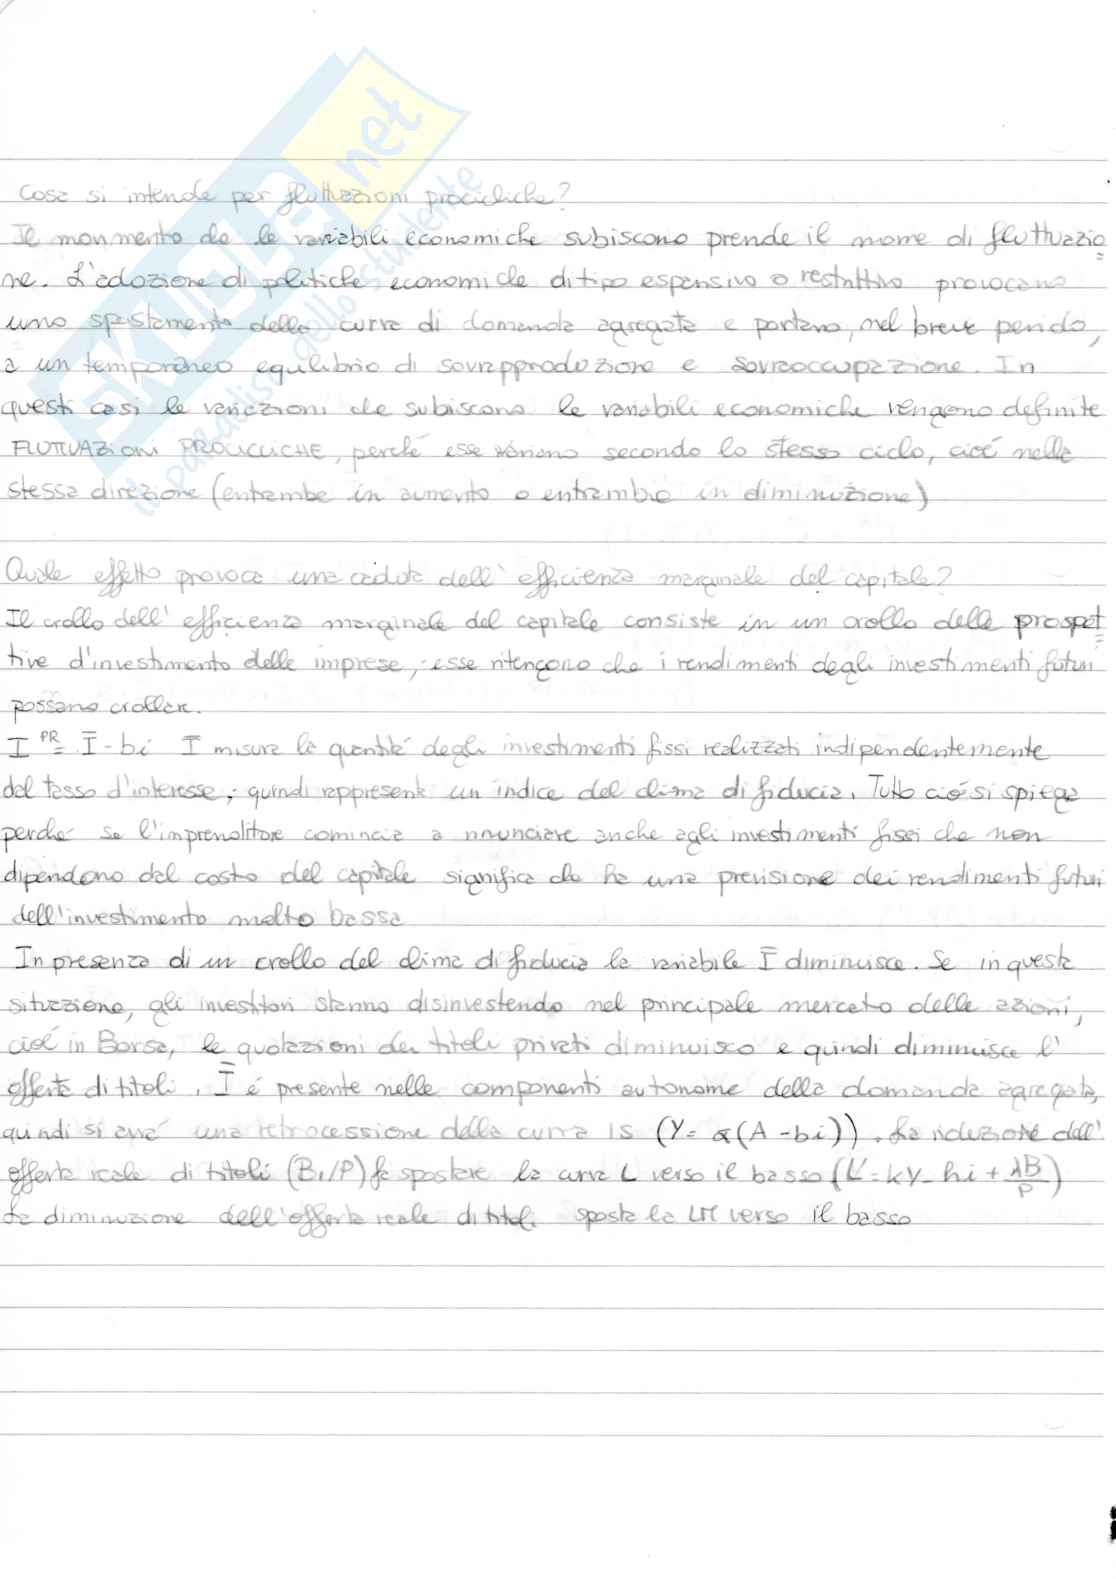 SKUOLA.net
il paradiso dello studente
Cosa si intende per fluttuazioni procicliche?
Il movimento che le variabili economiche subiscono prende il nome di fluttuazio
ne. L'adozione di politiche economiche di tipo espansivo o restrittivo provocano
uno spostamento della curva di domanda agregata e portano, nel breve periodo,
a un temporaneo equilibrio di sovrapproduzione e sovraoccupazione. In
questi casi le variazioni che subiscono le variabili economiche vengono definite
FLUTTUAZIONI PROCICLICHE, perché esse variano secondo lo stesso ciclo, cioé nella
stessa direzione (entrambe in aumento o entrambe in diminuzione)
Quale effetto provoca una caduta dell'efficienza marginale del capitale?
Il crollo dell'efficienza marginale del capitale consiste in un crollo delle prospet
tive d'investimento delle imprese, esse ritengono che i rendimenti degli investimenti futuri
possano crollare.
I PR = Ī - bi Ī misura la quantitá degli investimenti fissi realizzati indipendentemente
dal tasso d'interesse, quindi rappresenta un indice del clima di fiducia. Tutto ció si spiega
perché se l'imprenditore comincia a rinunciare anche agli investimenti fissi che non
dipendono dal costo del capitale significa che ha una previsione dei rendimenti futuri
dell'investimento molto bassa
In presenza di un crollo del clima di fiducia la variabile Ī diminuisce. Se in questa
situazione, gli investitori stanno disinvestendo nel principale mercato delle azioni,
cioé in Borsa, le quotazioni dei titoli privati diminuisco e quindi diminuisce l'
offerta di titoli. Ī é presente nelle componenti autonome della domanda agregata,
quindi si avrá una retrocessione della curva IS (Y= α(A - bi)). La riduzione dell'
offerta reale di titoli (B/P) fa spostare la curva L verso il basso (L'= kY - hi + λB/P)
La diminuzione dell'offerta reale di titoli sposta la LM verso il basso